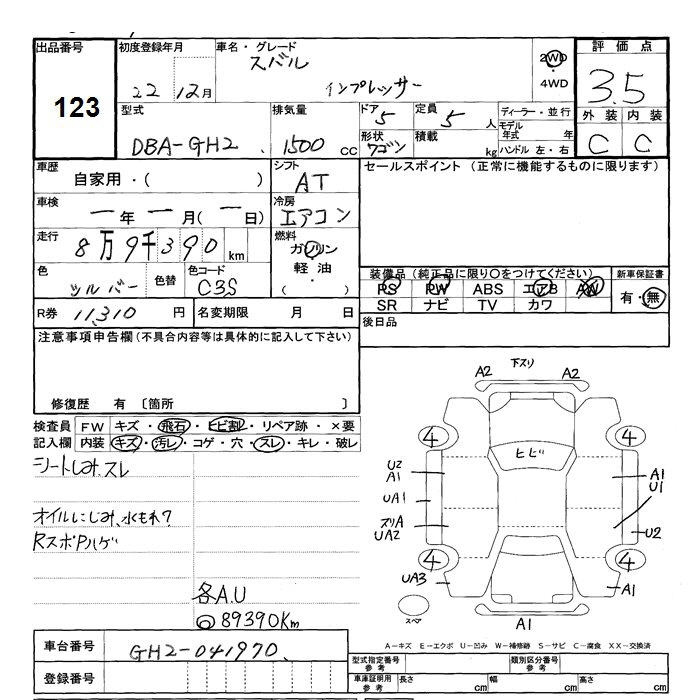 出品番号 初度登録年月 車名・グレード 評価点
123
22 12月
スバル
インプレッサー
2WD
・
4WD
3.5
外装 内装
C C
型式 排気量 ドア 定員 ディーラー・並行
DBA-GH2 1500 cc 5 5 人
モデル年式 年
形状 積載
ワゴン kg ハンドル 左・右
車歴 シフト セールスポイント (正常に機能するものに限ります)
自家用・( ) AT
車検 冷房
一年 一月(一日) エアコン
走行 燃料
8万9千390km ガソリン
・
軽油
・
( )
色 色替 色コード
シルバー C35
装備品 (純正品に限り○をつけてください) 新車保証書
PS PW ABS エアB AW 有・無
SR ナビ TV カワ
R券 11,310 円 名変期限 月 日
後日品
注意事項申告欄(不具合内容等は具体的に記入して下さい)
修復歴 有 〔箇所 〕
検査員 FW キズ・飛石・ヒビ割・リペア跡・×要
記入欄 内装 キズ・汚レ・コゲ・穴・スレ・キレ・破レ
シートしみ.スレ
オイルにじみ、水もれ?
RスポPハゲ
各A.U
◎89390Km
下スリ
A2 A2
4 4
ヒビ
U2
A1
A1
U1
UA1
ズリA
UA2
U2
4 4
UA3 A1
スペア
A1
A-キズ E-エクボ U-凹み W-補修跡 S-サビ C-腐食 XX-交換済
車台番号 GH2-041970
登録番号
型式指定番号 参考 類別区分番号 参考
車庫証明用 参考 長さ cm 幅 cm 高さ cm